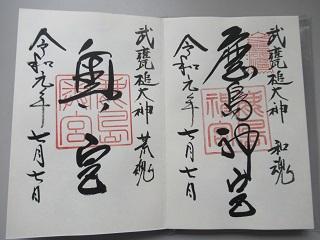 武甕槌大神 和魂
鹿島神宮
令和元年七月七日
武甕槌大神 荒魂
奥宮
令和元年七月七日